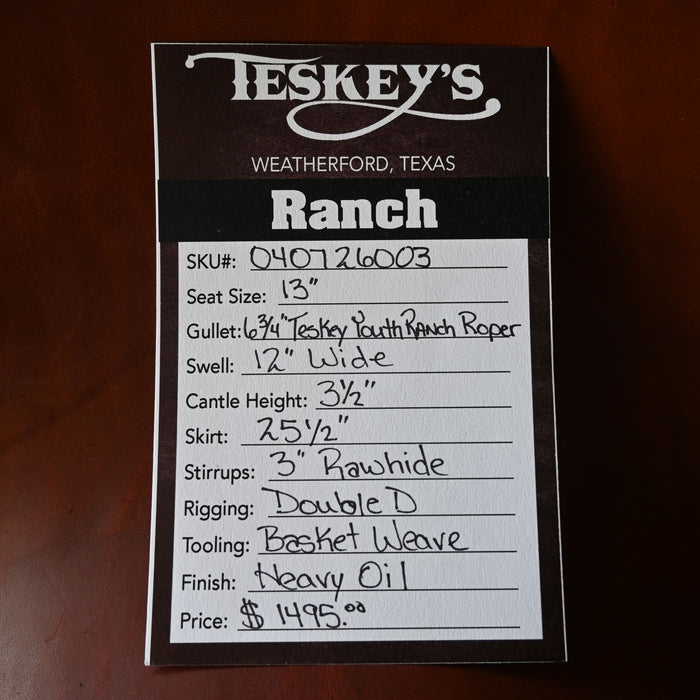 TESKEY'S
WEATHERFORD, TEXAS
Ranch
SKU#: 040726003
Seat Size: 13"
Gullet: 6 3/4" Teskey Youth Ranch Roper
Swell: 12" Wide
Cantle Height: 3 1/2"
Skirt: 25 1/2"
Stirrups: 3" Rawhide
Rigging: Double D
Tooling: Basket Weave
Finish: Heavy Oil
Price: $ 1495.00